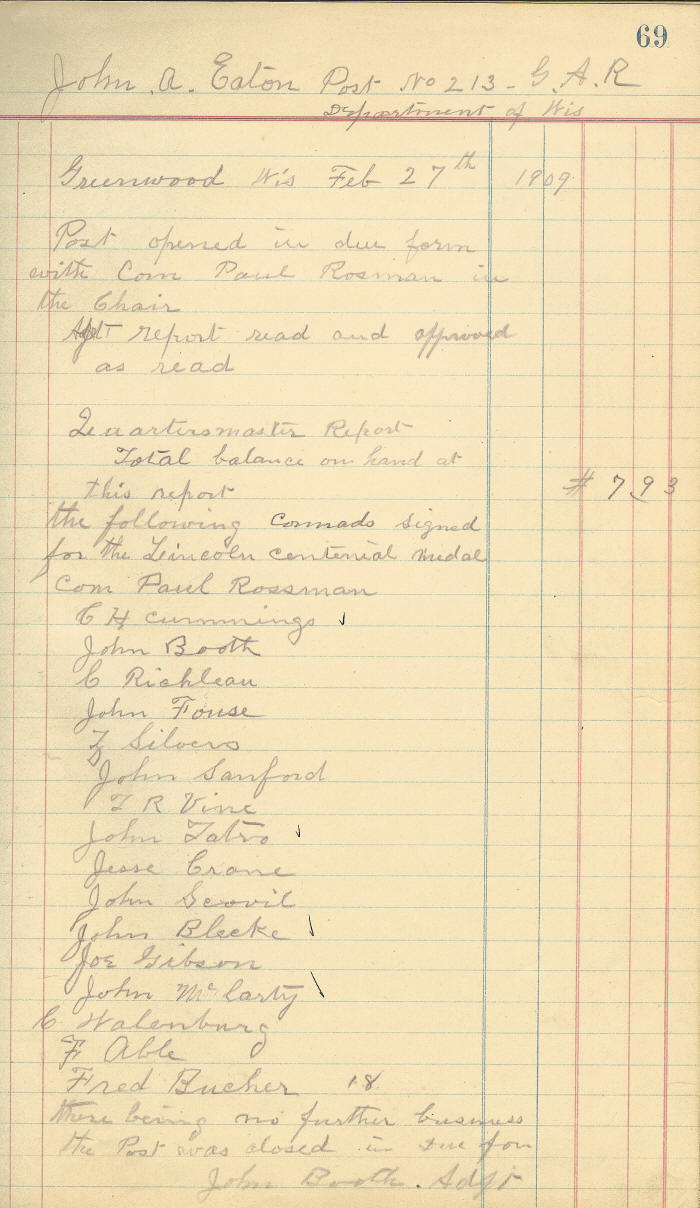 69
John. A. Eaton Post No 213 - G. A. R
Department of Wis
Greenwood Wis Feb 27th 1909
Post opened in due form
with Com Paul Rosman in
the Chair
Adjt report read and approved
as read
Quartersmaster Report
Total balance on hand at
this report # 7,93
the following Comrads signed
for the Lincoln centenial medal
Com Paul Rossman
C H Cummings
John Booth
C Richleau
John Fouse
Z Silvers
John Sanford
T R Vine
John Tatro
Jesse Crane
John Scovil
John Blecke
Joe Gibson
John McCarty
C Walenburg
F Able
Fred Bucher 18
there being no further business
the Post was closed in Due for
John Booth. Adjt